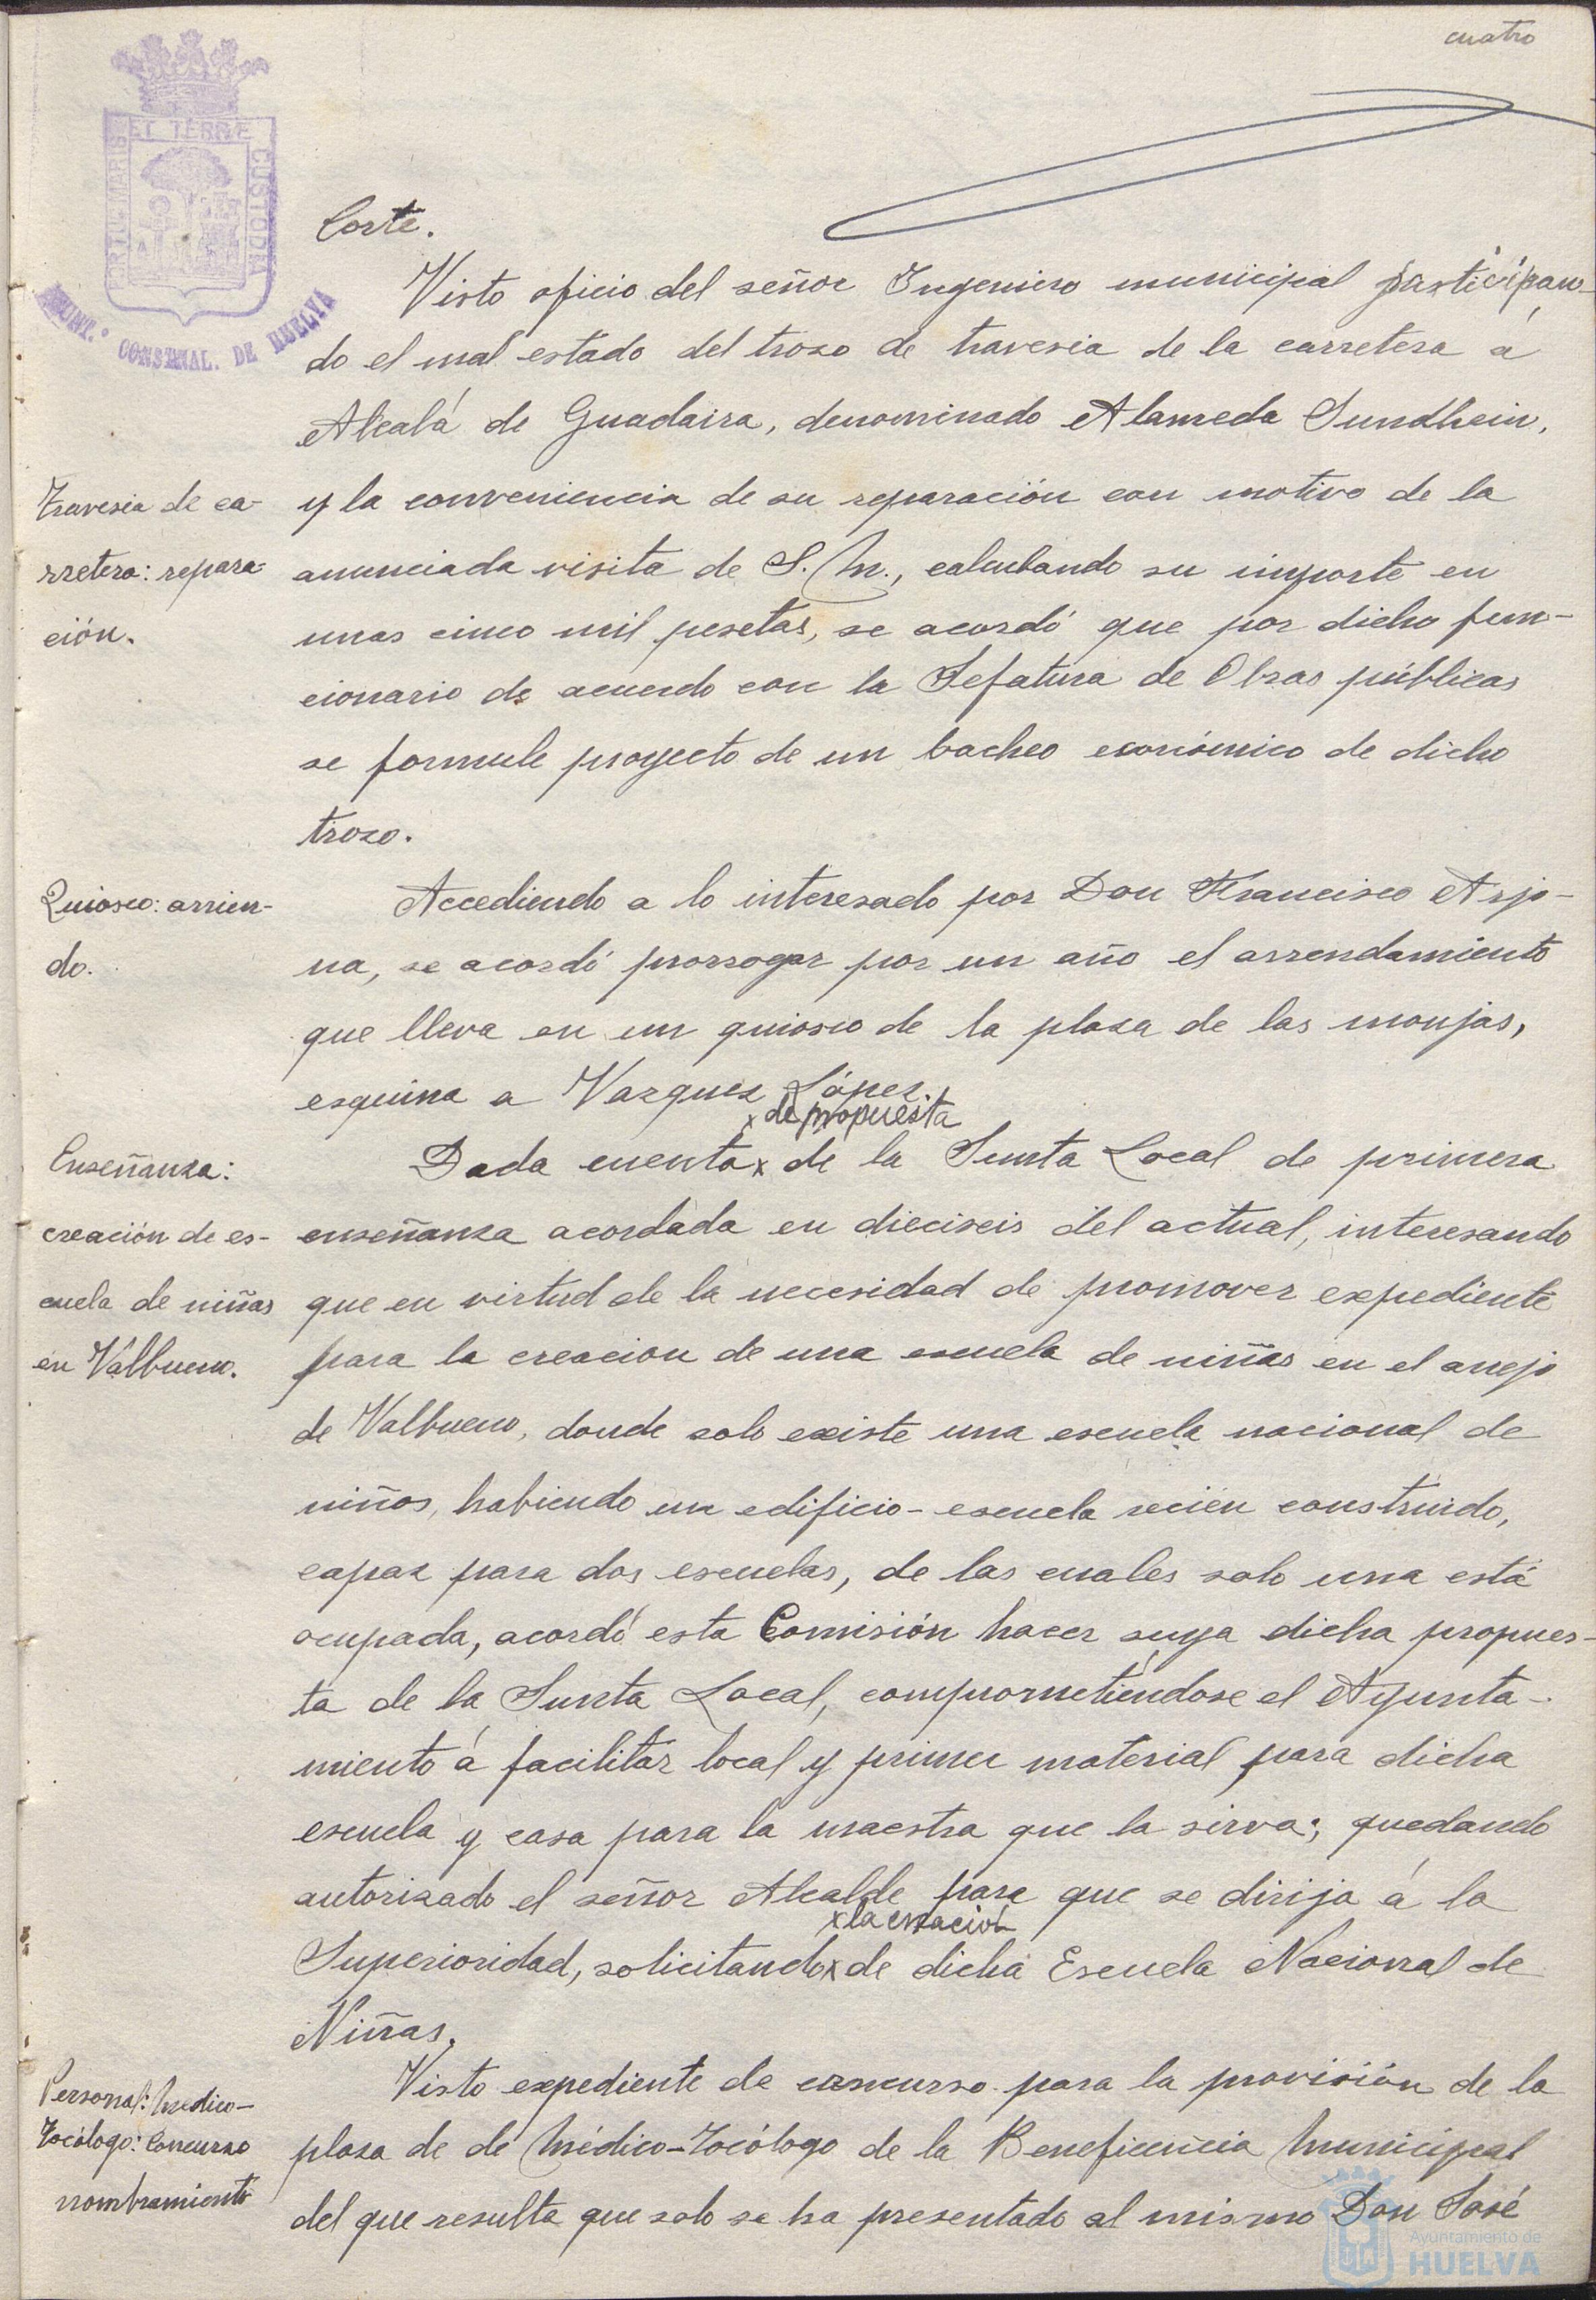 cuatro
PORTUS MARIS ET TERRE CUSTODIA
AYUNT.º CONSTNAL. DE HUELVA
Corte.
Visto oficio del señor Ingeniero municipal participan-
do el mal estado del trozo de travesia de la carretera á
Alcalá de Guadaira, denominado Alameda Sundhein,
Travesia de ca-
y la conveniencia de su reparación con motivo de la
rretera: repara-
anunciada visita de S. M., calculando su importe en
ción.
unas cinco mil pesetas, se acordó que por dicho fun-
cionario de acuerdo con la Jefatura de Obras públicas
se formule proyecto de un bacheo económico de dicho
trozo.
Quiosco: arrien-
Accediendo a lo interesado por Don Francisco Arjo-
do.
na, se acordó prorrogar por un año el arrendamiento
que lleva en un quiosco de la plaza de las monjas,
esquina a Vazquez López.
x de propuesta
Enseñanza:
Dada cuenta x de la Junta Local de primera
creación de es-
enseñanza acordada en dieciseis del actual, interesando
cuela de niñas
que en virtud de la necesidad de promover expediente
en Valbueno.
para la creacion de una escuela de niñas en el anejo
de Valbueno, donde solo existe una escuela nacional de
niños, habiendo un edificio-escuela recién construido,
capaz para dos escuelas, de las cuales solo una está
ocupada, acordó esta Comisión hacer suya dicha propues-
ta de la Junta Local, comprometiéndose el Ayunta-
miento á facilitar local y primer material para dicha
escuela y casa para la maestra que la sirva; quedando
autorizado el señor Alcalde para que se dirija á la
x la creación
Superioridad, solicitando x de dicha Escuela Nacional de
Niñas.
Personal: Medico-
Visto expediente de concurso para la provisión de la
Tocólogo: Concurso
plaza de de Médico-Tocólogo de la Beneficencia Municipal
nombramiento
del que resulta que solo se ha presentado al mismo Don José
Ayuntamiento de
HUELVA